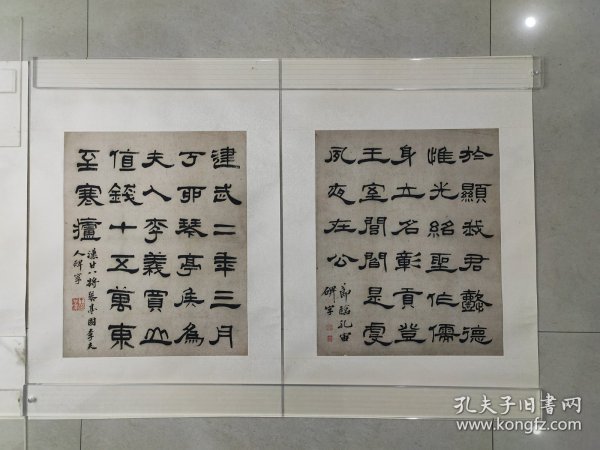 於顯我君懿德
惟光紹聖作儒
身立名彰貢登
王室是虔
夙夜在公
節臨孔宙
碑字
建武二年三月
丁卯琴亭侯為
夫人李義買此
值錢十五萬東
至寒
漢廿八將琴亭國李夫
人碑字
孔夫子旧书网
www.kongfz.com